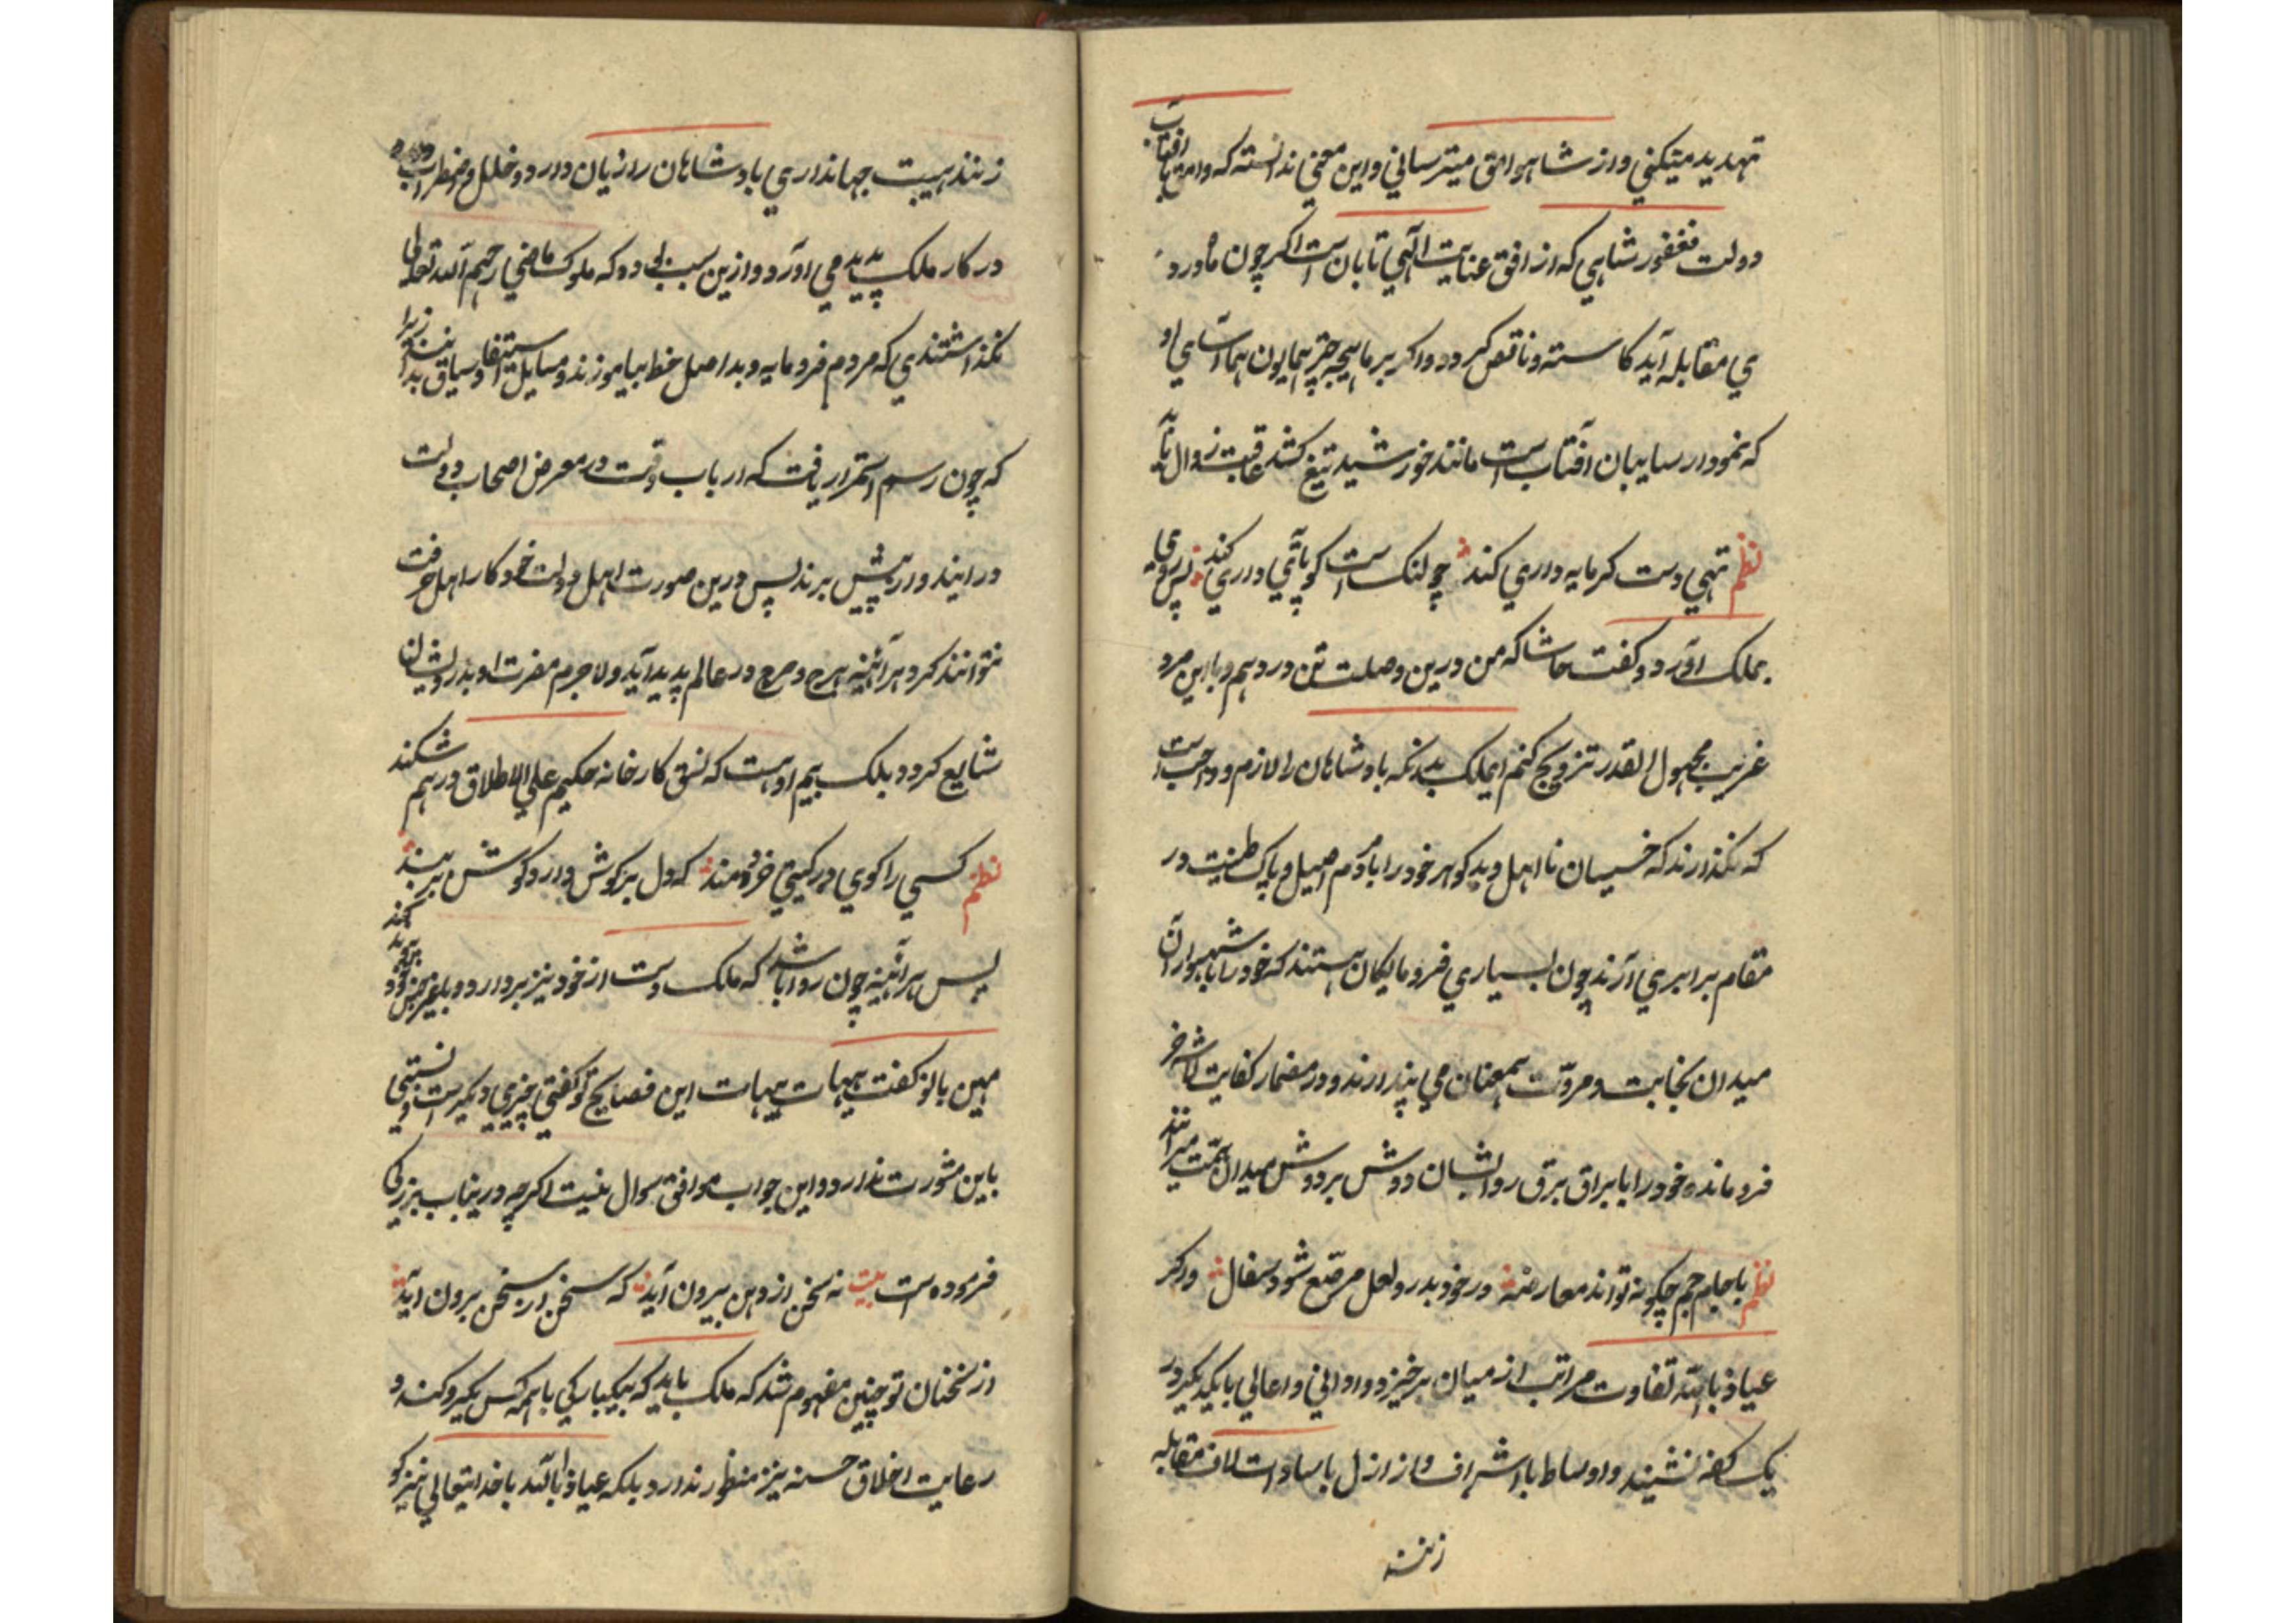 تهدید میکنی و از شاهوامق میترسانی و این معنی ندانسته که وامق با آفتاب
دولت فغفور شاهی که از افق عنایت الٰهی تابان است اگر چون ماه در و
ی مقابله آید کاسته و ناقص گردد و اگر بر ماهیچه چتر همایون هما آسای او
که نمودار سایبان آفتاب است مانند خورشید تیغ کشد عاقبت زوال یابد
نظم تهی دست کر مایه داری کند چو لنک است کو پائی داری کند پس روی
بملک آورد و کفت حاشا که من درین وصلت تن در دهم و با این مرد
غریب مجهول القدر تزویج کنم ایملک بدانکه بادشاهان را لازم و واجب است
که نکذارند که خسیسان نا اهل و بد کوهر خود را با مردم اصیل و پاک طینت در
مقام برابری آرند چون بسیاری فرومایکان هستند که خود را با شهسواران
میدان نجابت و مروّت همعنان می پندارند و در مضمار کفایت لاشه خر
فرومانده خود را با براق برق روایشان دوش بر دوش میدان همّت میرانند
نظم با جام جم چکونه تواند معارضه در خود بدر و لعل مرصّع شود سفال و رکر
عیاذ باللّه تفاوت مراتب از میان برخیزد و ادوانی و اعالی با یکدیکر در
یک کفه نشینند و اوساط با اشراف و ارازل با سادات لاف مقابله
زنند
زنند هیبت جهانداری بادشاهان را زیان دارد و خلل و اضطراب
در کار ملک پدید می آورد و ازین سبب بوده که ملوک ماضی رحمهم اللّه تعالی
نکذاشتندی که مردم فرومایه و بد اصل خط بیاموزند و مسایل استیفا و سیاق بدانند زیرا
که چون رسم استمرار یافت که ارباب حرفت در معرض اصحاب دولت
در ایند و ارپیش برند پس درین صورت اهل دولت خود کار اهل حرفت
نتوانند کرد هر آئینه هرج و مرج در عالم پدید آید و لاجرم مضرت او بدرویشان
شایع کردد بلک بیم اوست که نسق کارخانه حکیم علی الاطلاق در هم شکند
نظم کسی را کوی در کیتی خردمند که دل بر کوش دارد کوش بر بند
پس هر آئینه چون روا باشد که ملک دست از خود نیز بر دارد و بغیر جنس خود پیوند کند
مهین بانو کفت هیهات هیهات این نصایح تو کفتی چیزی دیکر است و نسبتی
باین مشورت ندارد و این جواب موافق سوال نیست اکرچه درینباب بزرکی
فرموده است بیت نه سخن از دهن بیرون آید که سخن از سخن برون آید
از سخنان تو چنین مفهوم شد که ملک باید که بیکبارکی با همه کس یکرو کند و
رعایت اخلاق حسنه نیز منظور ندارد بلکه عیاذ باللّه با خدایتعالی نیز کو